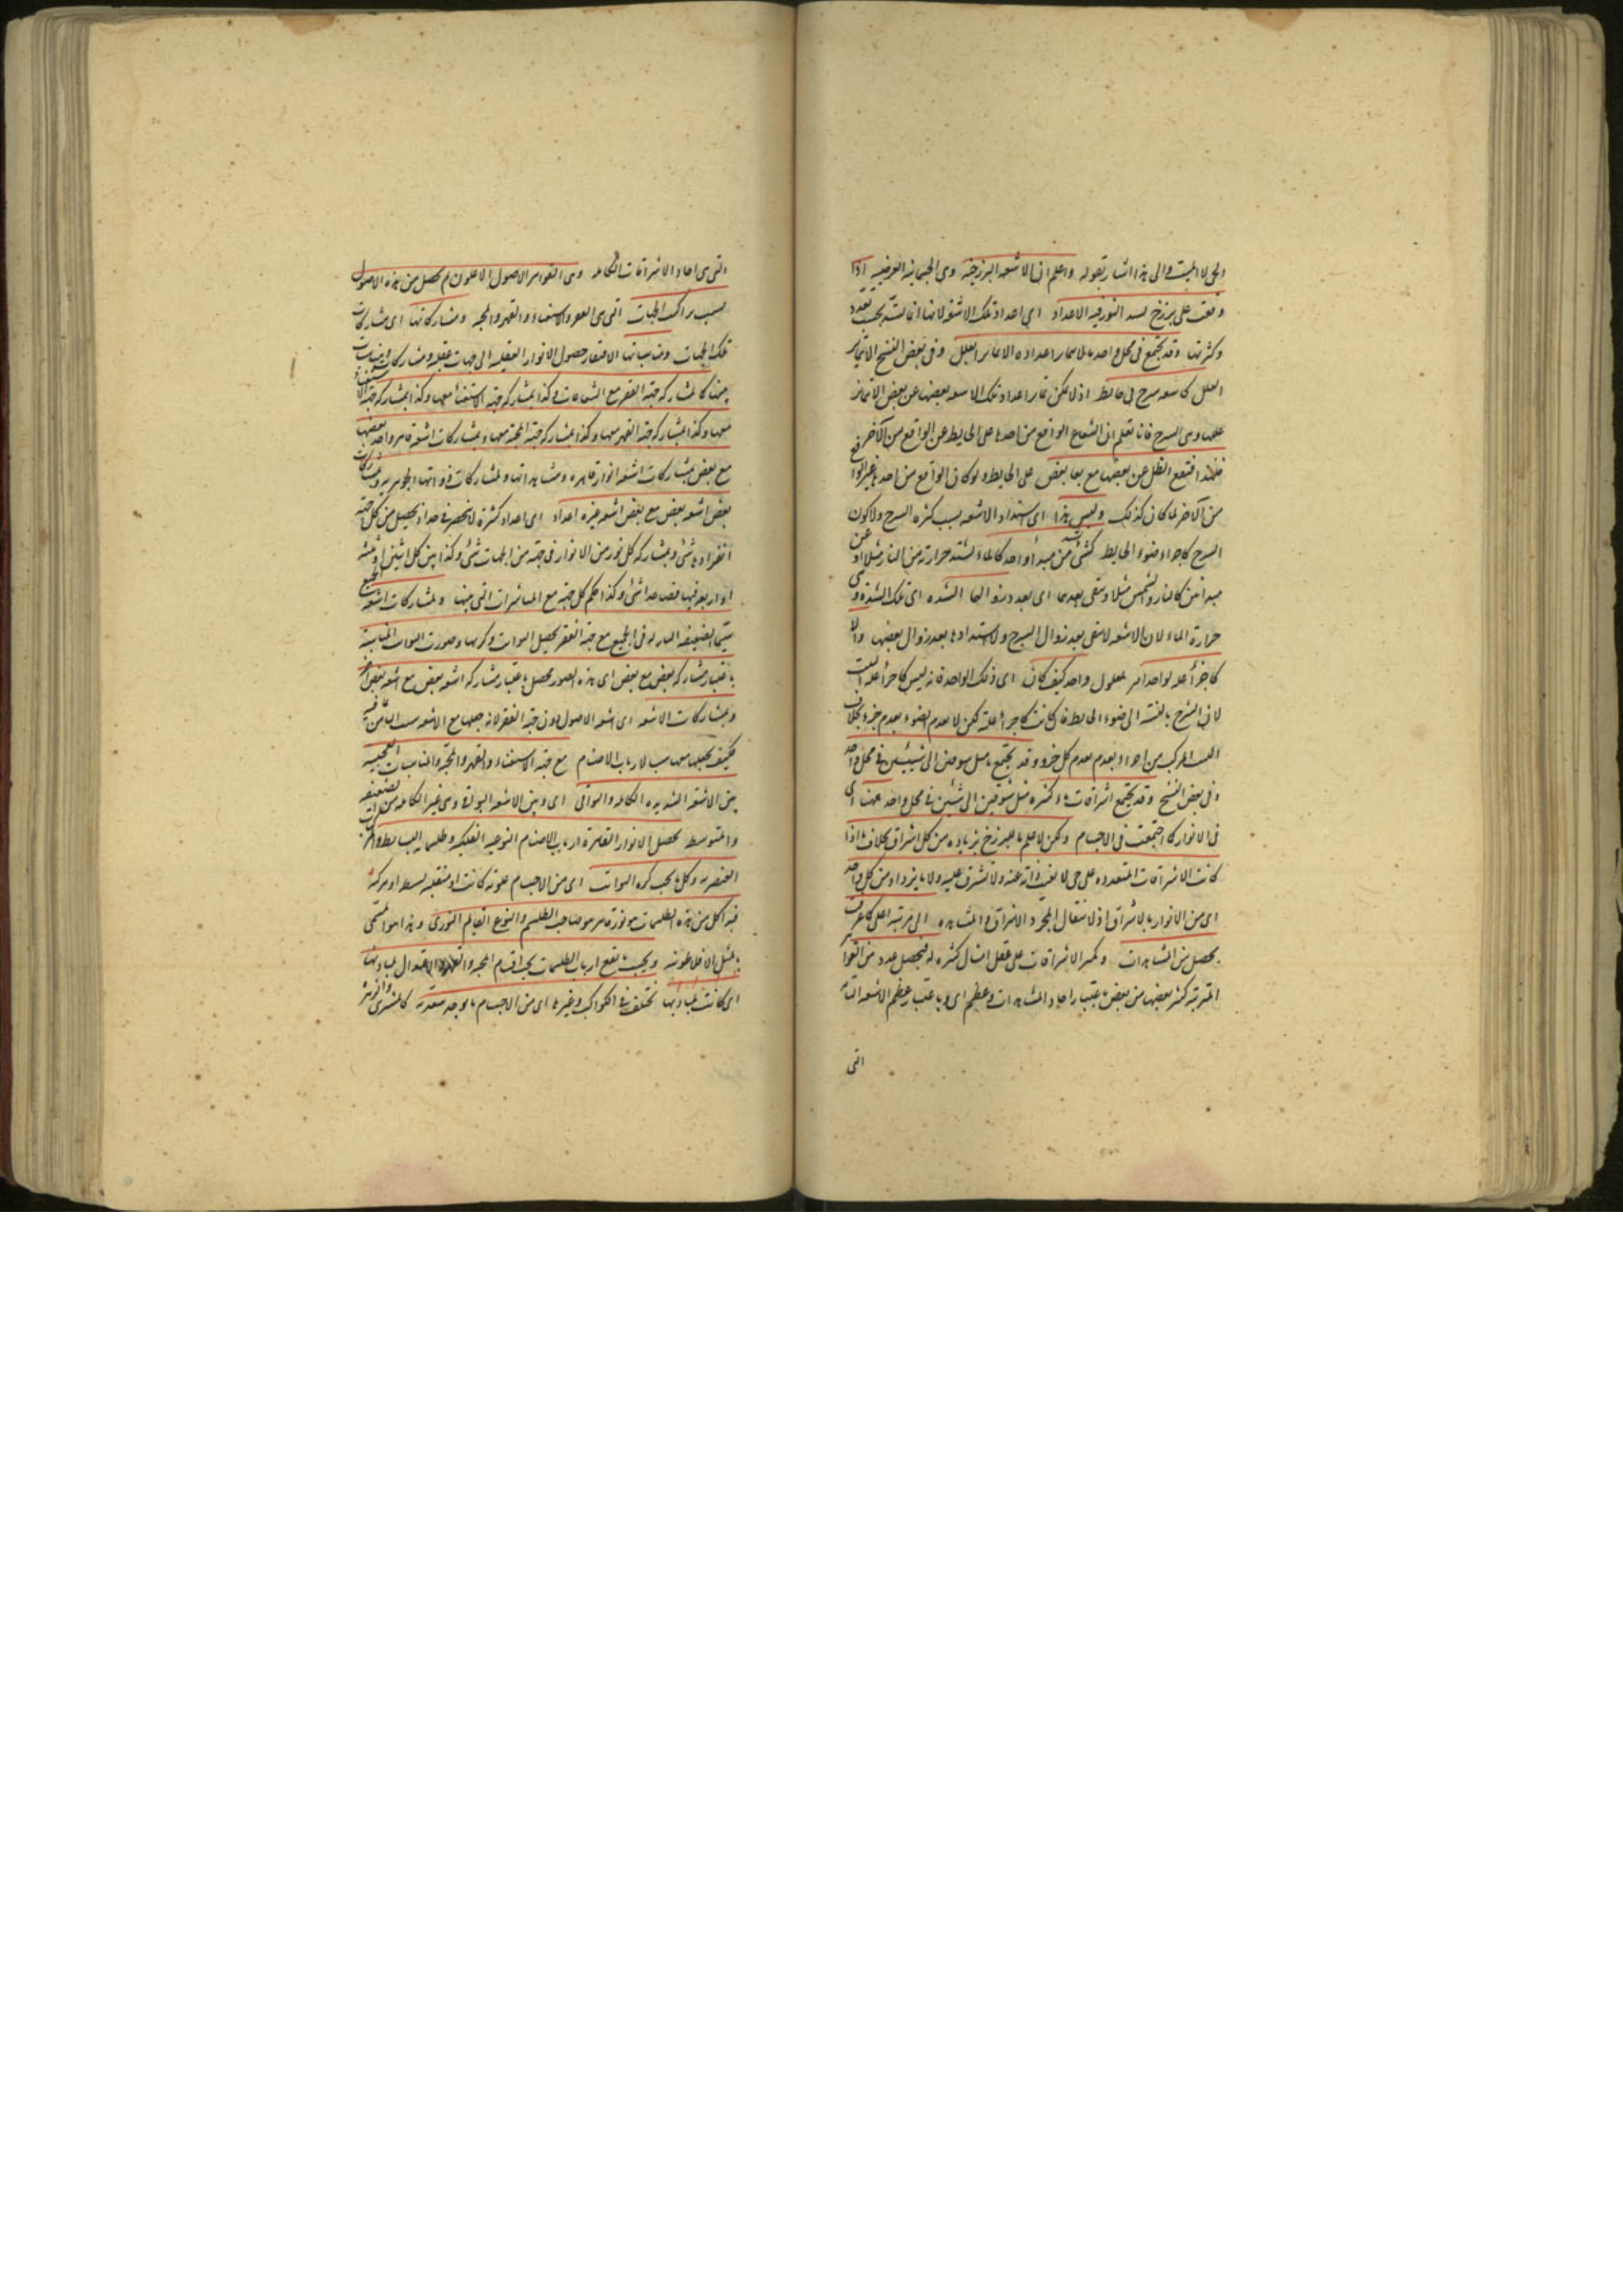 الحى لا الميت والى هذا اشار بقوله واعلم ان الاشعة البرزخية وهى الجسمانية العرضية اذا
وقعت على برزخ يشتد النور فيه الاعداد اى اعداد تلك الاشعة لانها انما تشتد بحسب تعدد
وكثرتها وقد يجتمع فى محل واحد ما لا يمتاز اعداده الا بتمايز العلل وفى بعض النسخ الا بتمايز
العلل كاشعة سرج فى حائط اذ لا يمكن تمايز اعداد تلك الاشعة بعضها عن بعض الا بتمايز
عللها وهى السرج فانا نعلم ان الشعاع الواقع من احدها على الحايط غير الواقع من الآخر
فيقع الظل عن بعضها مع بقاء بعض على الحايط ولو كان الواقع من احدها غير الواقع
من الآخر لما كان كذلك وليس هذا اى اشتداد الاشعة بسبب كثرة السرج ولا كون
السرج كاجزاء ضوء الحايط كشئ يشتد من مبدأ واحد كالماء تشتد حرارته من النار مثلا او عن
مبدائين كالنار والشمس مثلا وتبقى بعدهما اى بعد زوالهما الشدة اى تلك الشدة وهى
حرارة الماء لان الاشعة لا تبقى بعد زوال السرج ولا اشتدادها بعد زوال بعضها ولا
كاجزاء علة لواحد اخر لمعلول واحد كيف كان اى ذلك الواحد فانه ليس كاجزاء علة البيت
لان السرج بالنسبة الى ضوء الحايط وان كانت كاجزاء علته لكن لا يعدم الضوء بعدم جزء بخلاف
البيت المركب من اجزاء يعدم بعدم كل جزء وقد يجتمع مثل شوقين الى شيئين فى محل واحد
وفى بعض النسخ وقد يجتمع اشراقات كثيرة مثل شوقين الى شيئين فى محل واحد اى
فى الانوار كما اجتمعت فى الاجسام ولكن لا علم للبرزخ بزيادة من كل اشراق بخلاف ما اذا
كانت الاشراقات المتعددة على حى لا تغيب ذاته عنه ولا تشرق عليه ولا ما يزداد من كل واحد
اى من الانوار بالاشراق اذ لا يغفل المجرد الاشراق والمشاهدة الى مرتبة اعلى كما عرفت
يحصل من المشاهدات وتكثر الاشراقات على عقل امثال كثيرة له فيحصل عدد من القواهر
المترتبة كثير بعضها من بعض باعتبار احاد المشاهدات وعظم اى وباعتبار عظم الاشعة التامة
التى
التى هى احاد الاشراقات الكاملة وهى القواهر الاصول الاعلون ثم يحصل من هذه الاصول
بسبب تراكب الجهات التى هى الفقر والاستغناء والقهر والمحبة ومشاركاتها اى مشاركات
تلك الجهات ومناسباتها لافتقار حصول الانوار العقلية الى جهات عقلية ومشاركات ومناسبات
بينها كما بمشاركة جهة الفقر مع الشعاعات وكذا بمشاركة جهة الاستغناء معها وكذا بمشاركة جهة
معها وكذا بمشاركة جهة القهر معها وكذا بمشاركة جهة المحبة معها وبمشاركات اشعة قاهر واحد بعضها
مع بعض بمشاركات اشعة انوار قاهرة ومشاهداتها وبمشاركات ذواتها الجوهرية وبمشاركات
بعض اشعة بعض مع بعض اشعة غيره اعداد اى اعداد كثيرة لا تنحصر فى حد اذ يحصل من كل جهة
انفرادها شئ وبمشاركة كل نور من الانوار فى جهة من الجهات شئ وكذا بين كل اثنين او ثلثة
او اربعة فيها فصاعدا شئ وكذا حكم كل جهة مع المباشرات التى بينها وبمشاركات اشعة الجميع
سيما الضعيفة النازلة فى الجميع مع جهة الفقر يحصل الثوابت وكرتها وصور الثوابت المتناسبة
باعتبار مشاركة بعض مع بعض اى هذه الصور تحصل باعتبار مشاركة اشعة بعض مع اشعة بعض آخر
وبمشاركات الاشعة اى اشعة الاصول دون جهة الفقر لانه جعلها مع الاشعة سبب الثامن بما فيه
فكيف يجعلها معها سببا لارباب الاصنام مع جهة الاستغناء والقهر والمحبة والمناسبات العجيبة
بين الاشعة الشديدة الكاملة والبواقى اى وبين الاشعة البواقى وهى غير الكاملة من الضعيفة
والمتوسطة يحصل الانوار القاهرة ارباب الاصنام النوعية الفلكية وطلسمات البسايط والمركبات
العنصرية وكل ما تحت كرة الثوابت اى من الاجسام علوية كانت او سفلية بسيطة او مركبة
فمبدأ كل من هذه الطلسمات هو نور قاهر هو صاحب الطلسم والنوع القايم النورى وهذا هو المسمى
بالمثل الافلاطونية وبحسب ما يقع ارباب الطلسمات تحت اقسام المحبة والقهر والاعتدال لمباديها
اى كانت لمباديها تختلف فى الكواكب وغيرها اى من الاجسام ما يوجد سعدية كالمشترى والزهرة